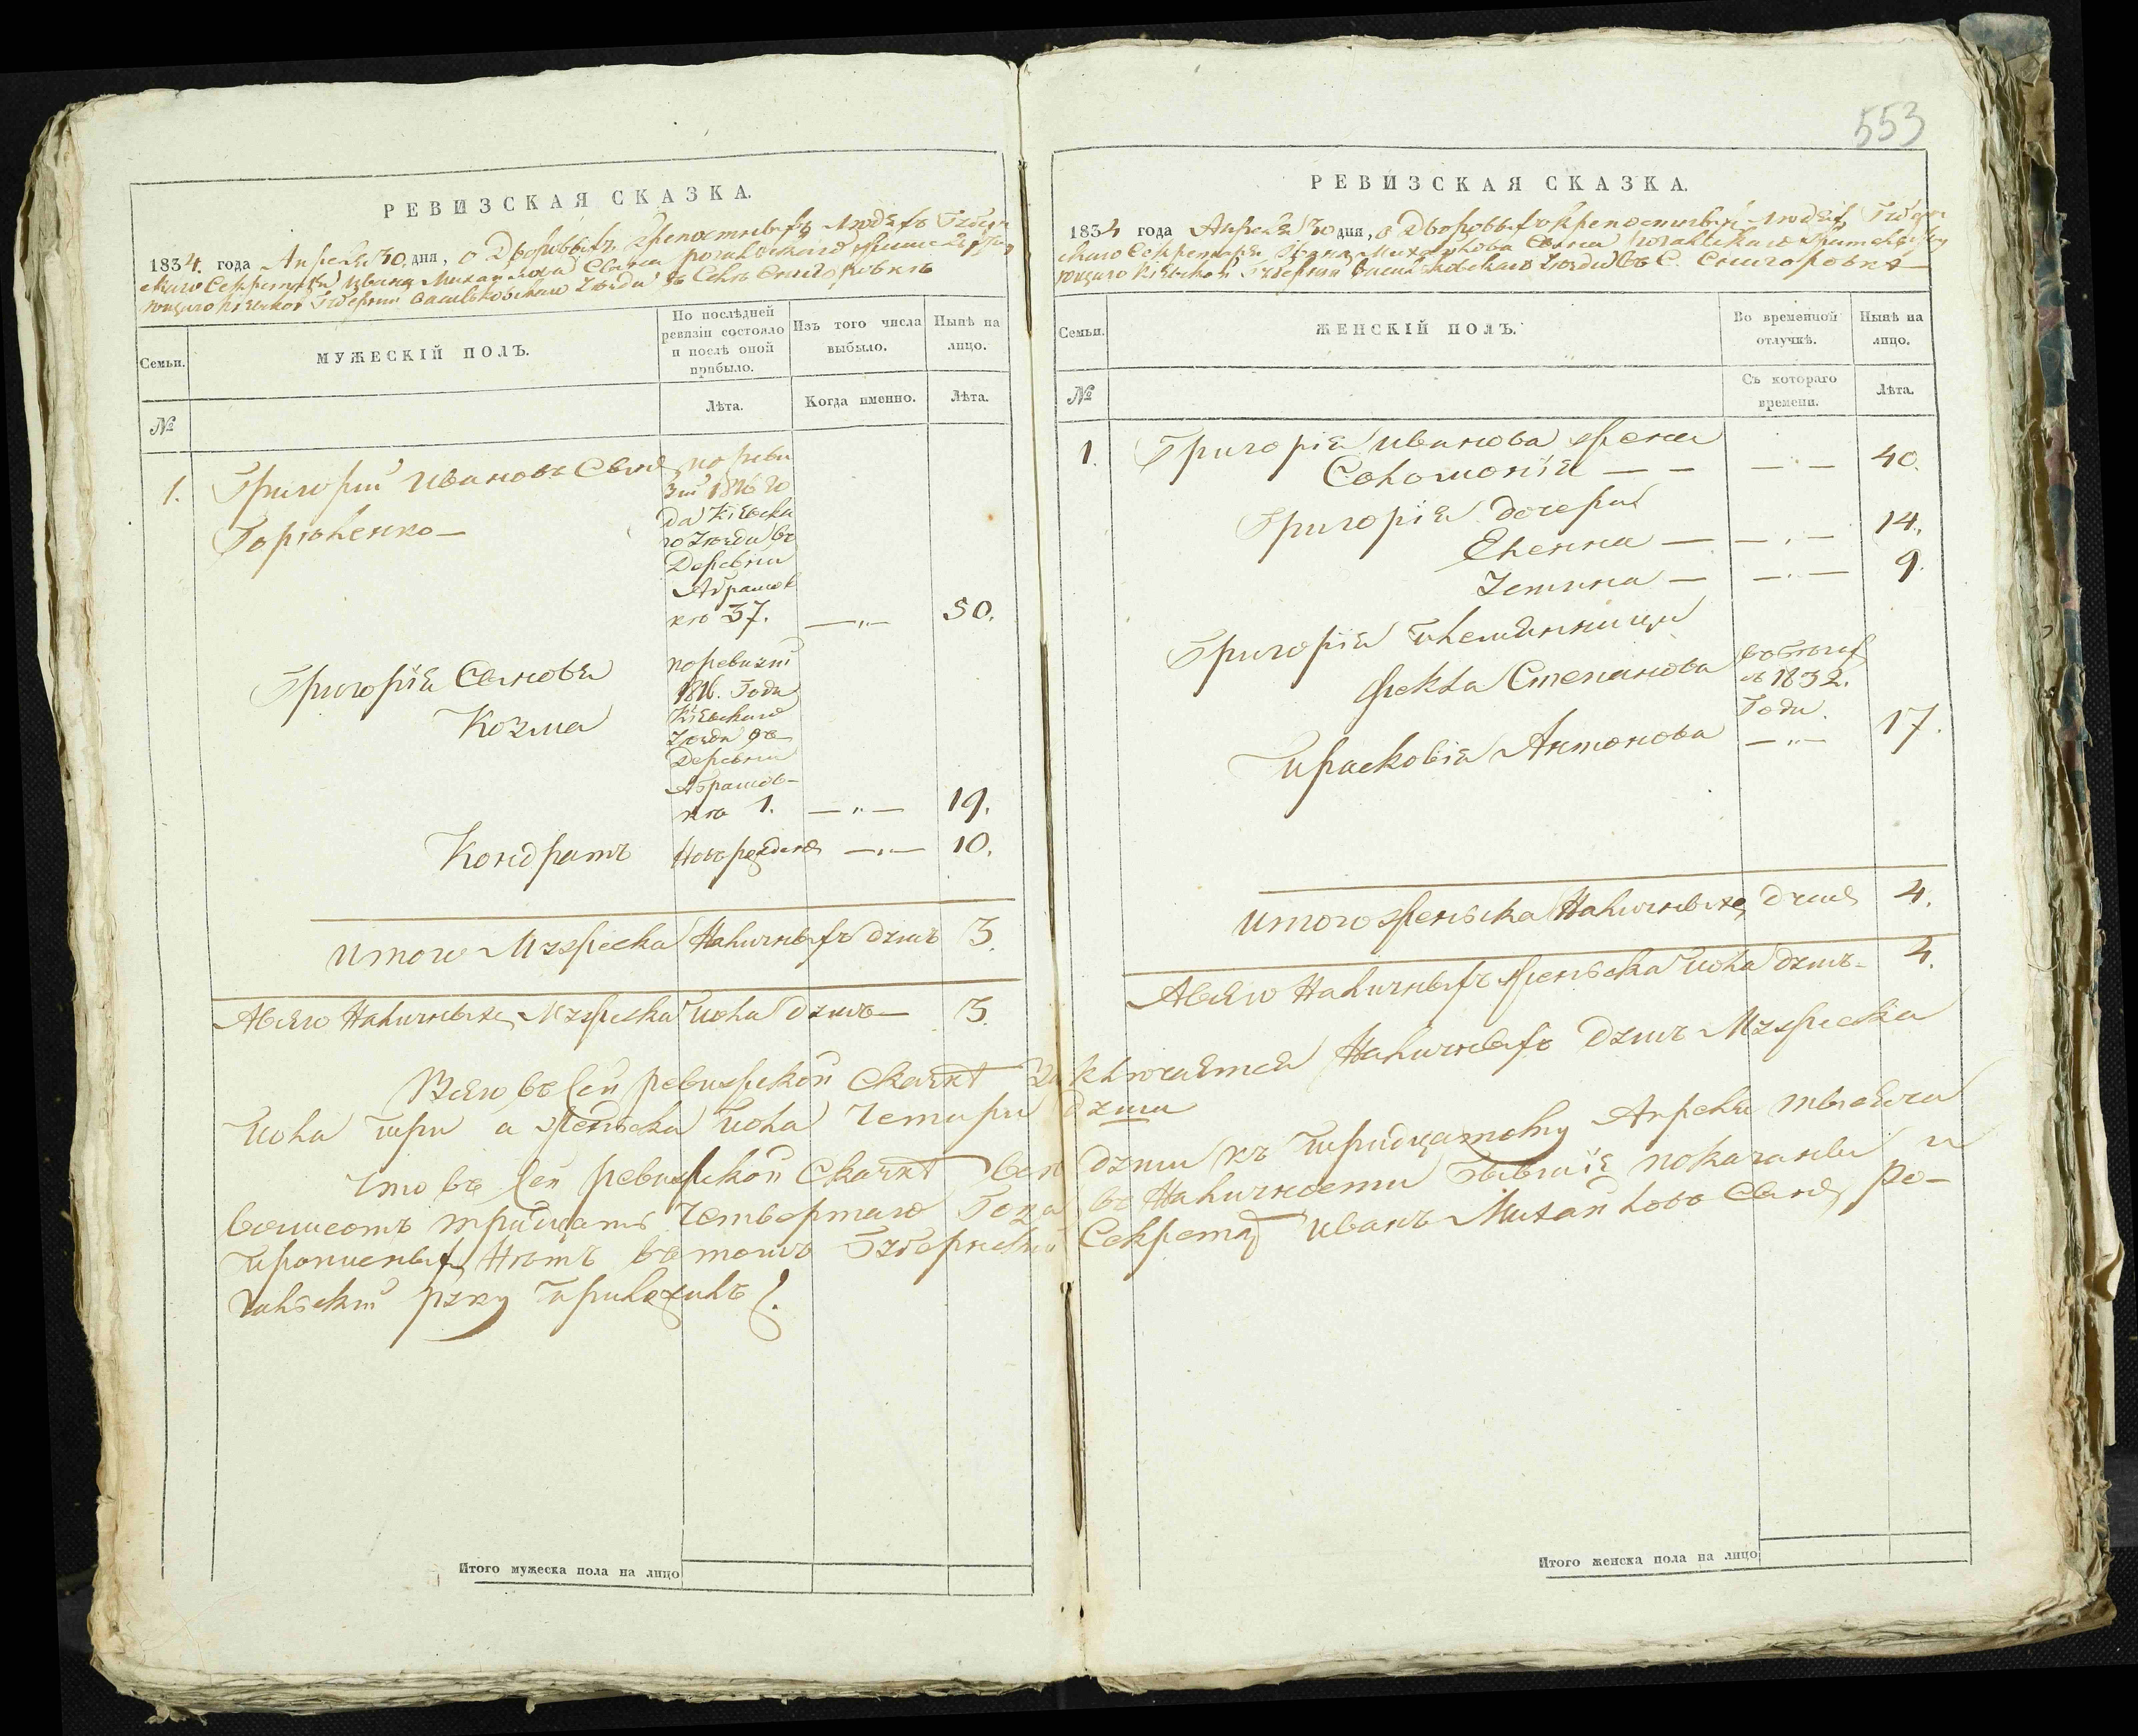 553
РЕВИЗСКАЯ СКАЗКА.
1834. года Апреля 30. дня, о Дворовыхъ крепостныхъ Людехъ Губерн
скаго Секретаря Ивана Михайлова Сына рогальского
ющаго Кіевской Губерніи Васильковскаго уезда въ Селе Снигоровкѣ
Семьи.
МУЖЕСКІЙ ПОЛЪ.
По послѣдней ревизіи состояло и послѣ оной прибыло.
Изъ того числа выбыло.
Нынѣ на лицо.
№
Лѣта.
Когда именно.
Лѣта.
1. Григорій Ивановъ Сынъ
Горюленко —
по реви
зіи 1816 го
да Кіевска
го уезда въ
Деревни
Абрамов
ке 37. — „ — 50.
Григорія Сыновья
Козма
по ревизіи
1816. Года
Кіевскаго
уезда въ
Деревни
Абрамов-
ке 1. — „ — 19.
Кондратъ новорожденъ — „ — 10.
Итого Мужеска Наличныхъ душъ 3.
А всего Наличныхъ Мужеска пола душъ — 3.
РЕВИЗСКАЯ СКАЗКА.
1834 года Апреля 30 дня, о Дворовыхъ крепостныхъ Людехъ Губерн
скаго Секретаря Ивана Михайлова Сына Рогальскаго
ющаго Кіевской Губерніи Васильковскаго уезда въ С. Снигоровкѣ —
Семьи.
ЖЕНСКІЙ ПОЛЪ.
Во временной отлучкѣ.
Нынѣ на лицо.
№
Съ котораго времени.
Лѣта.
1. Григорія Иванова жена
Соломонія — — — „ — 40.
Григорія дочери
Еленна — — „ — 14.
Устина — — „ — 9.
Григорія племянници
Фекла Степанова
въ бегах
съ 1832.
Года.
Прасковія Антонова — „ — 17.
Итого женска Наличныхъ душъ 4.
А всего Наличныхъ женска пола душъ — 4.
Всего въ сей ревизской сказкѣ заключается Наличныхъ душъ Мужеска
пола три а женска пола четыри души
Что въ сей ревизской сказкѣ все души къ тридцатому Апреля тысяча
восмсотъ тридцать четвертаго Года въ Наличности бывшіе показаны и
прописныхъ нѣтъ въ томъ Губернскій Секретаръ Иванъ Михайловъ Сынъ Ро-
гальскій руку приложилъ.
Итого мужеска пола на лицо
Итого женска пола на лицо